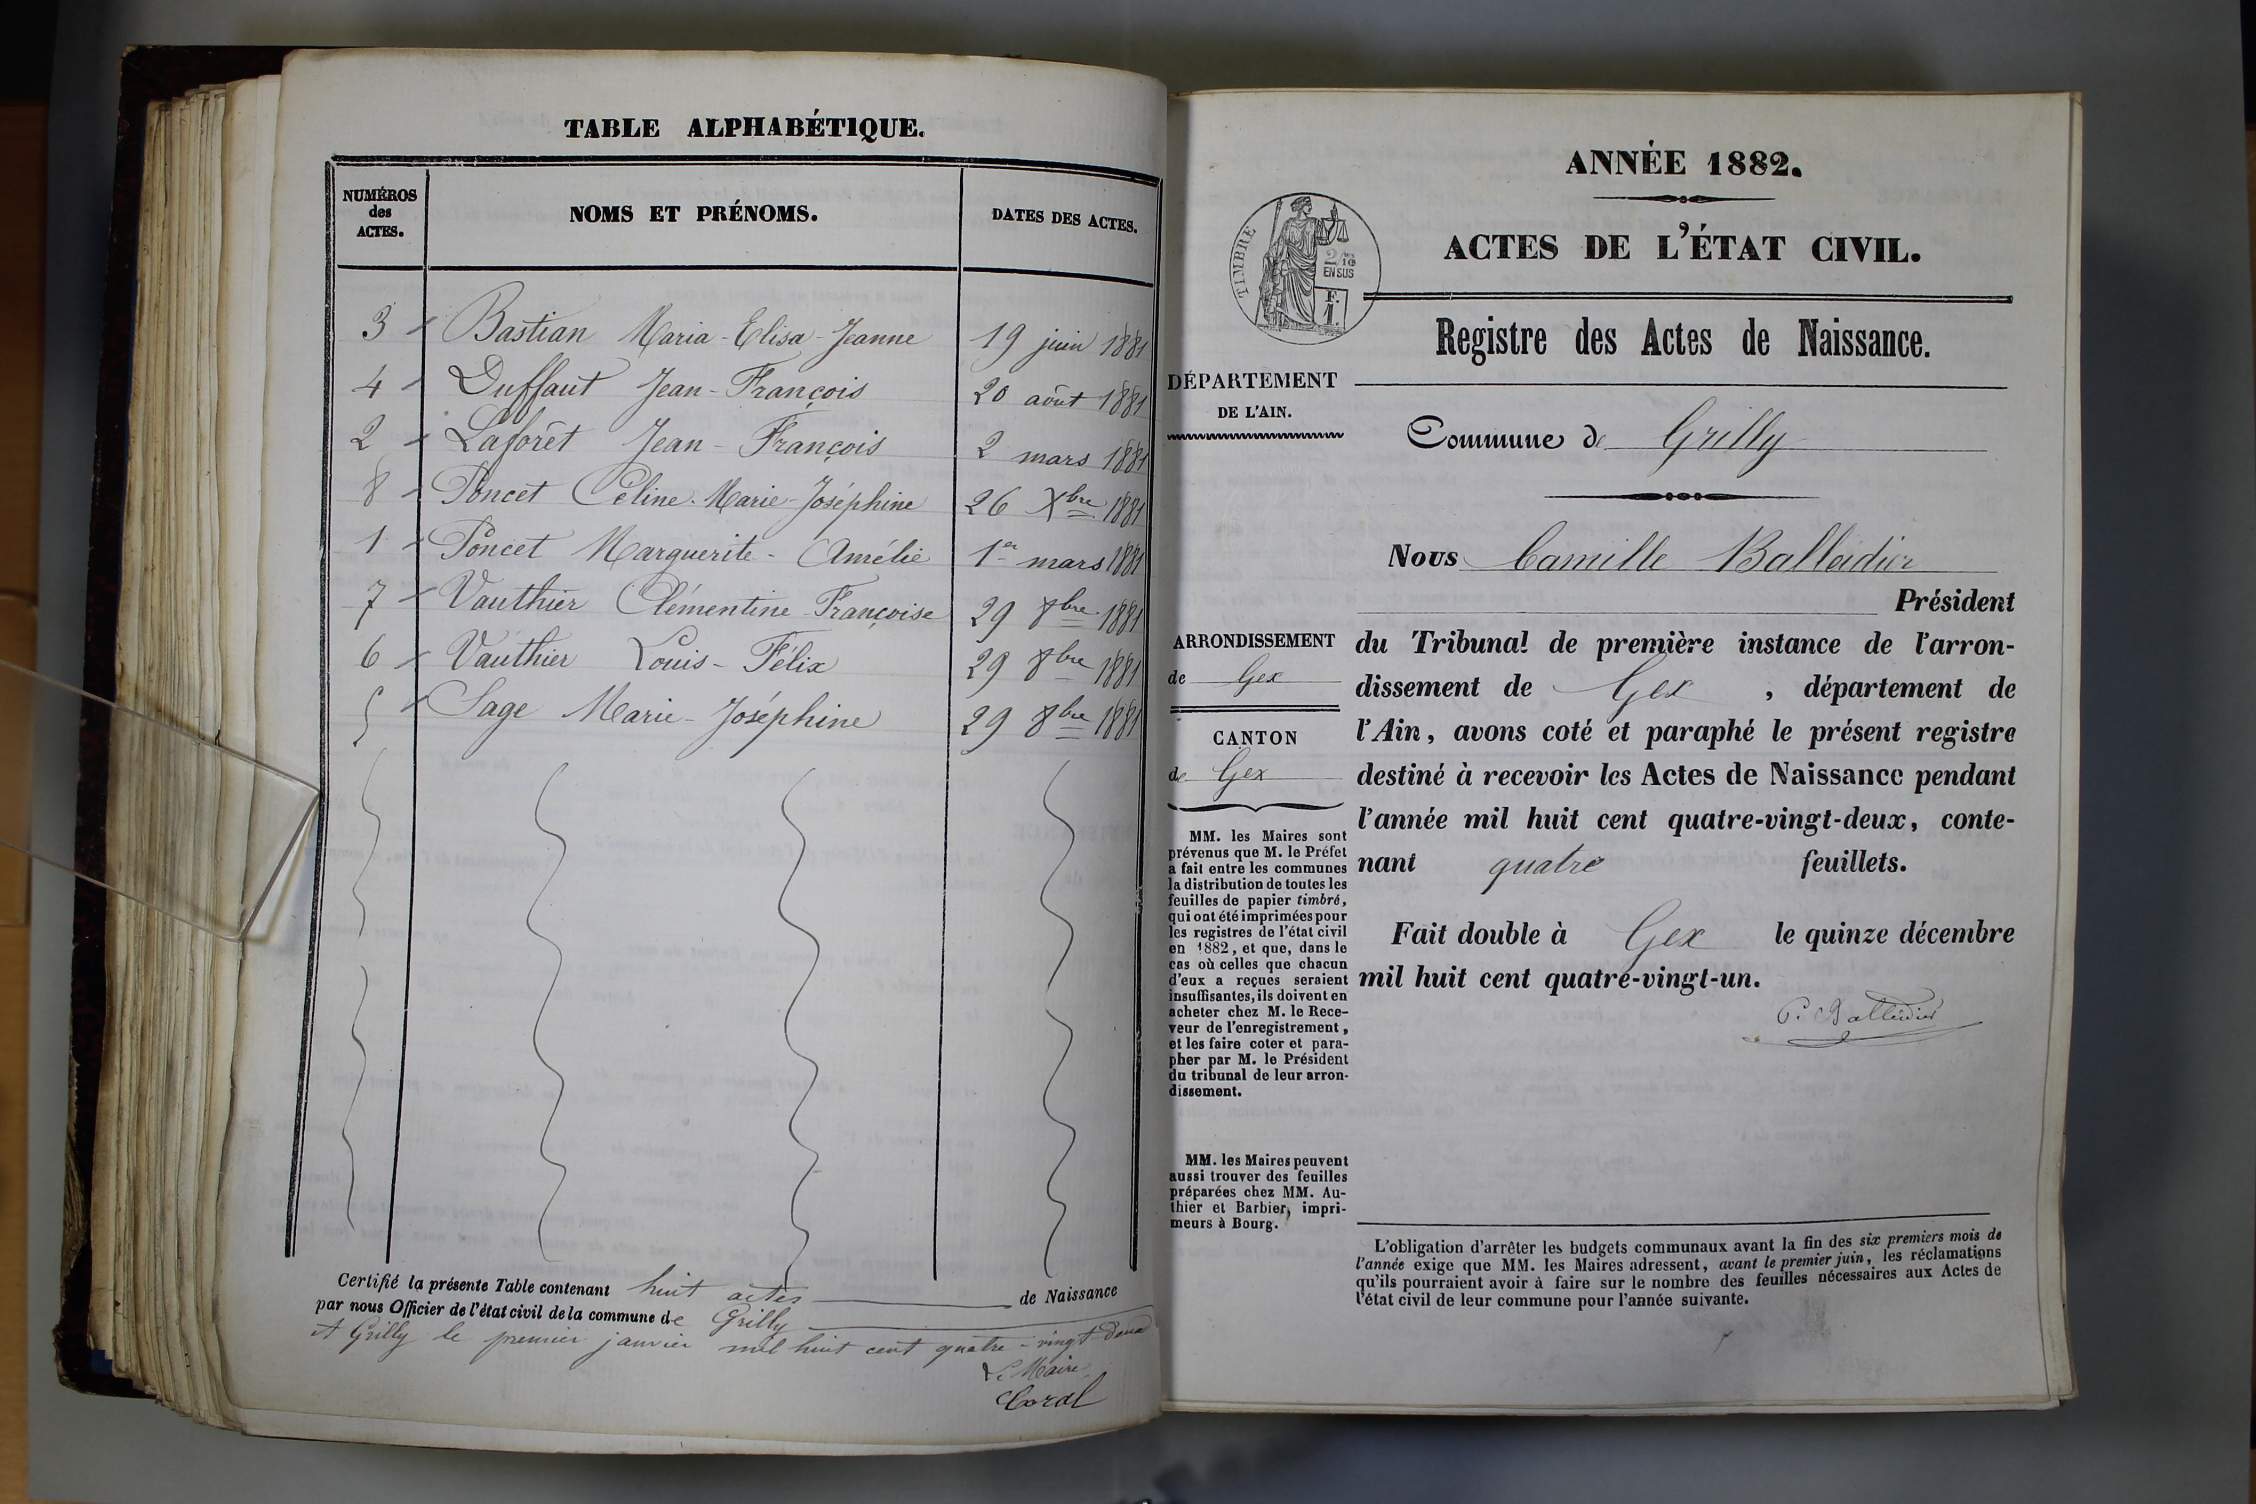 TABLE ALPHABÉTIQUE.
NUMÉROS
des
ACTES.
NOMS ET PRÉNOMS.
DATES DES ACTES.
3 Bastian Maria-Elisa-Jeanne 19 juin 1881
4 Duffaut Jean-François 20 août 1881
2 Laforêt Jean-François 2 mars 1881
8 Poncet Céline-Marie-Joséphine 26 Xbre 1881
1 Poncet Marguerite-Amélie 1er mars 1881
7 Vauthier Clémentine-Françoise 29 8bre 1881
6 Vauthier Louis-Félix 29 8bre 1881
5 Sage Marie-Joséphine 29 8bre 1881
Certifié la présente Table contenant huit actes de Naissance
par nous Officier de l'état civil de la commune de Grilly
A Grilly le premier janvier mil huit cent quatre-vingt-deux
Le Maire
ANNÉE 1882.
TIMBRE
2/10
EN SUS
F.
1.
ACTES DE L'ÉTAT CIVIL.
Registre des Actes de Naissance.
DÉPARTEMENT
DE L'AIN.
Commune de Grilly
Nous Camille Balleidier
Président
du Tribunal de première instance de l'arron-
dissement de Gex, département de
l'Ain, avons coté et paraphé le présent registre
destiné à recevoir les Actes de Naissance pendant
l'année mil huit cent quatre-vingt-deux, conte-
nant quatre feuillets.
Fait double à Gex le quinze décembre
mil huit cent quatre-vingt-un.
C. Balleidier
ARRONDISSEMENT
de Gex
CANTON
de Gex
MM. les Maires sont
prévenus que M. le Préfet
a fait entre les communes
la distribution de toutes les
feuilles de papier timbré,
qui ont été imprimées pour
les registres de l'état civil
en 1882, et que, dans le
cas où celles que chacun
d'eux a reçues seraient
insuffisantes, ils doivent en
acheter chez M. le Rece-
veur de l'enregistrement,
et les faire coter et para-
pher par M. le Président
du tribunal de leur arron-
dissement.
MM. les Maires peuvent
aussi trouver des feuilles
préparées chez MM. Au-
thier et Barbier, impri-
meurs à Bourg.
L'obligation d'arrêter les budgets communaux avant la fin des six premiers mois de
l'année exige que MM. les Maires adressent, avant le premier juin, les réclamations
qu'ils pourraient avoir à faire sur le nombre des feuilles nécessaires aux Actes de
l'état civil de leur commune pour l'année suivante.